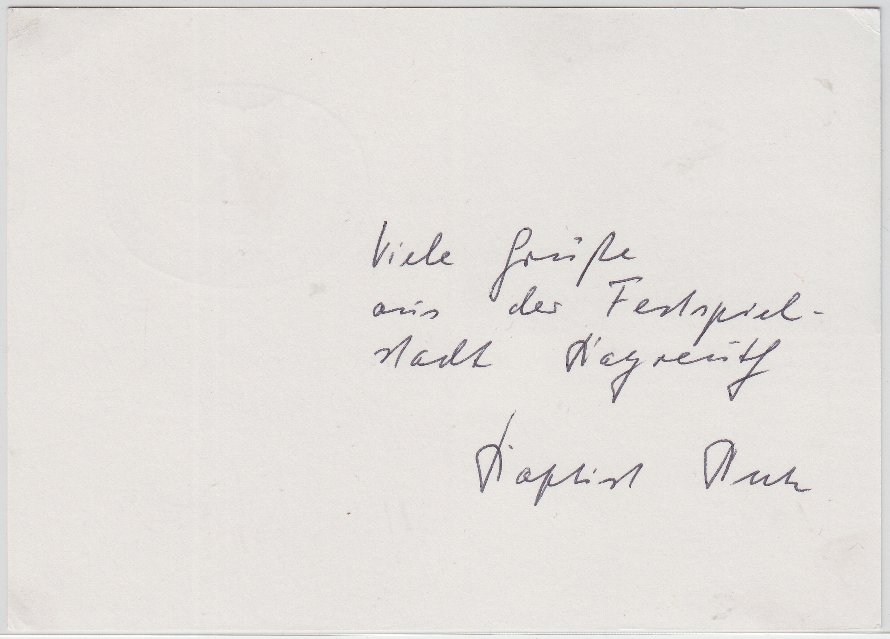 Viele Grüße
aus der Festspiel-
stadt Bayreuth
Baptist